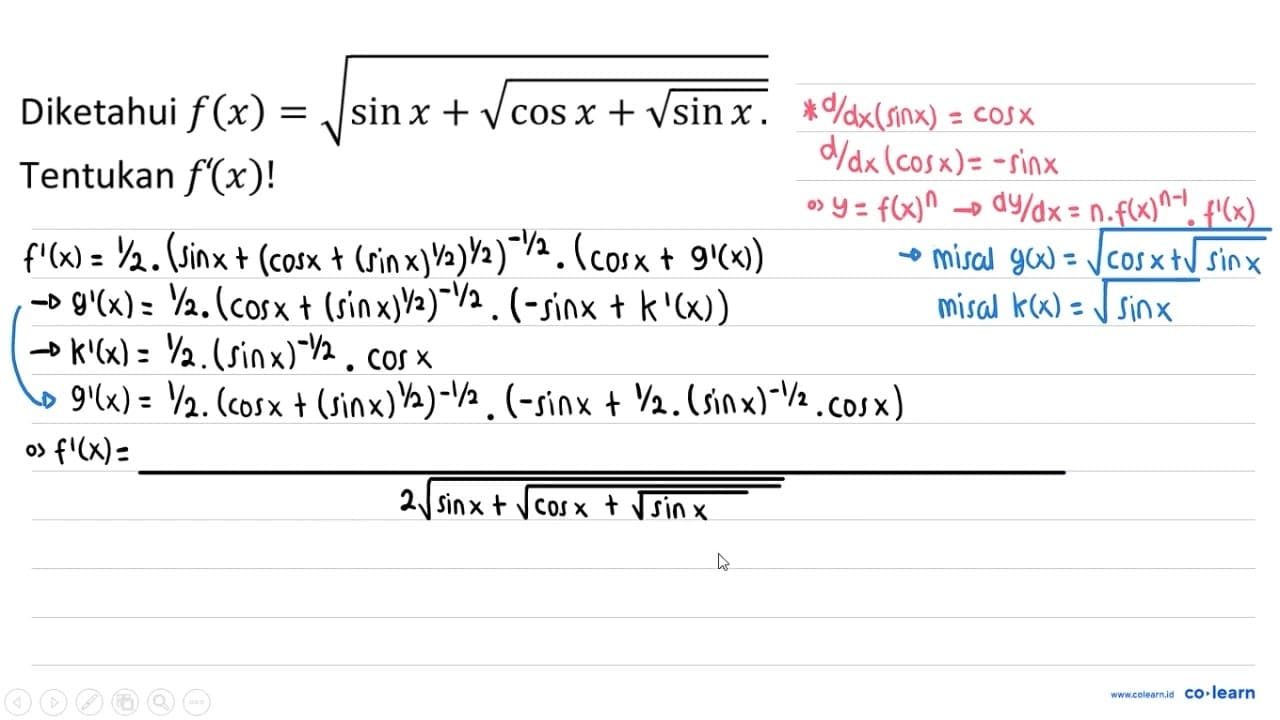 Diketahui f(x) = √(sin x + √(cos x + √(sin x))).
Tentukan f'(x)!
* d/dx(sinx) = cosx
d/dx(cosx) = -sinx
⇒ y = f(x)^n → dy/dx = n.f(x)^(n-1) . f'(x)
→ misal g(x) = √(cosx+√(sinx))
misal k(x) = √(sinx)
f'(x) = 1/2.(sinx + (cosx + (sinx)^1/2)^1/2)^-1/2 . (cosx + g'(x))
→ g'(x) = 1/2.(cosx + (sinx)^1/2)^-1/2 . (-sinx + k'(x))
→ k'(x) = 1/2.(sinx)^-1/2 . cosx
g'(x) = 1/2.(cosx + (sinx)^1/2)^-1/2 . (-sinx + 1/2.(sinx)^-1/2 .cosx)
⇒ f'(x) =
2√(sinx + √(cosx + √(sinx)))
www.colearn.id co·learn